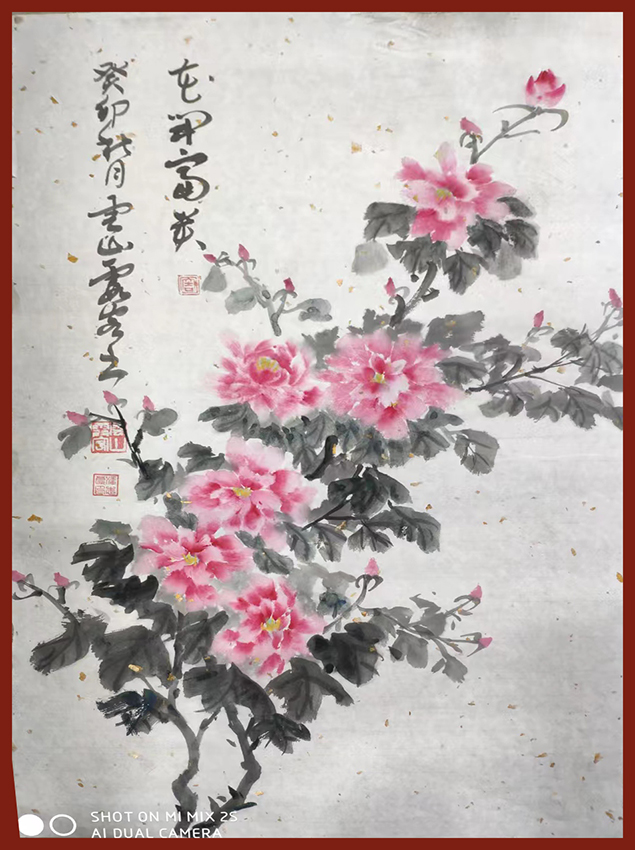 花開富貴
癸卯秋月雲山
SHOT ON MI MIX 2S
AI DUAL CAMERA